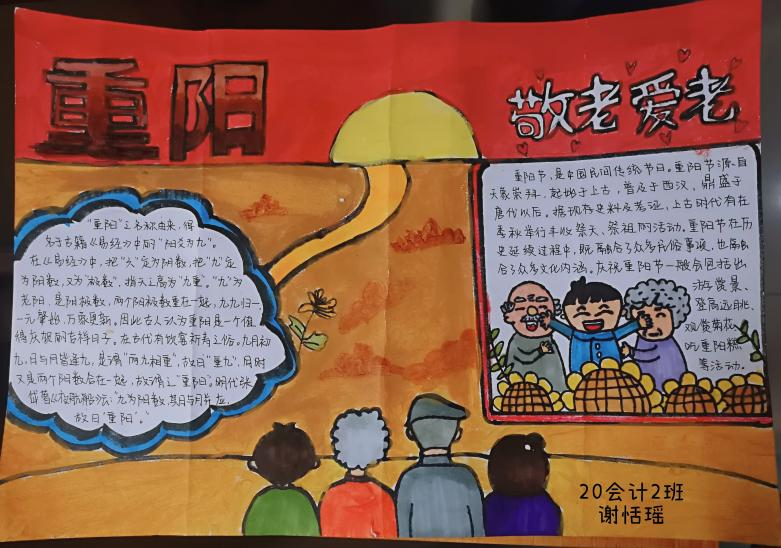 重阳
敬老爱老
"重阳"之名称由来,得
名于古籍《易经》中的"阳爻为九"。
在《易经》中,把"六"定为阴数,把"九"定
为阳数,又为"极数",指天之高为"九重"。"九"为
老阳,是阳极数,两个阳极数重在一起,九九归一
一元肇始,万象更新。因此古人认为重阳是一个值
得庆祝的吉祥日子。在古代有饮宴祈寿之俗。九月初
九,日与月皆逢九,是谓"两九相重",故曰"重九",同时
又是两个阳数合在一起,故谓之"重阳"。明代张
岱著《夜航船》云:"九为阳数,其日与月并应,
故曰'重阳'。"
重阳节,是中国民间传统节日。重阳节源自
天象崇拜,起始于上古,普及于西汉,鼎盛于
唐代以后。据现存史料及考证,上古时代有在
季秋举行丰收祭天、祭祖的活动。重阳节在历
史延续过程中,既融合了众多民俗事项,也融
合了众多文化内涵。庆祝重阳节一般会包括出
游赏景、
登高远眺、
观赏菊花、
吃重阳糕
等活动。
20会计2班
谢恬瑶